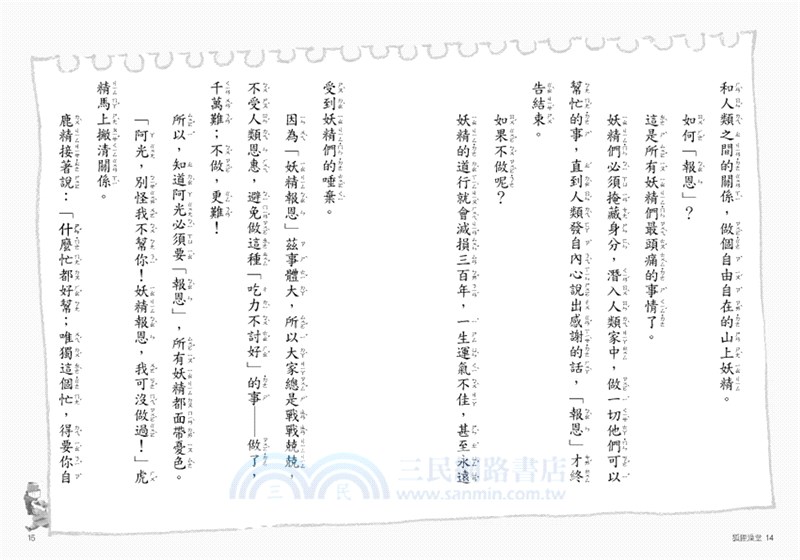 和人類之間的關係，做個自由自在的山上妖精。
如何「報恩」？
這是所有妖精們最頭痛的事情了。
妖精們必須掩藏身分，潛入人類家中，做一切他們可以
幫忙的事，直到人類發自內心說出感謝的話，「報恩」才終
告結束。
如果不做呢？
妖精的道行就會減損三百年，一生運氣不佳，甚至永遠
受到妖精們的唾棄。
因為「妖精報恩」茲事體大，所以大家總是戰戰兢兢，
不受人類恩惠，避免做這種「吃力不討好」的事——做了，
千萬難；不做，更難！
所以，知道阿光必須要「報恩」，所有妖精都面帶憂色。
「阿光，別怪我不幫你！妖精報恩，我可沒做過！」虎
精馬上撇清關係。
鹿精接著說：「什麼忙都好幫；唯獨這個忙，得要你自
14
15
三民網路書店
www.sanmin.com.tw